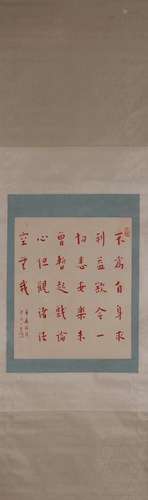 不為自身求
利益欲令一
切悉安樂未
曾暫起戲論
心但觀諸法
空無我